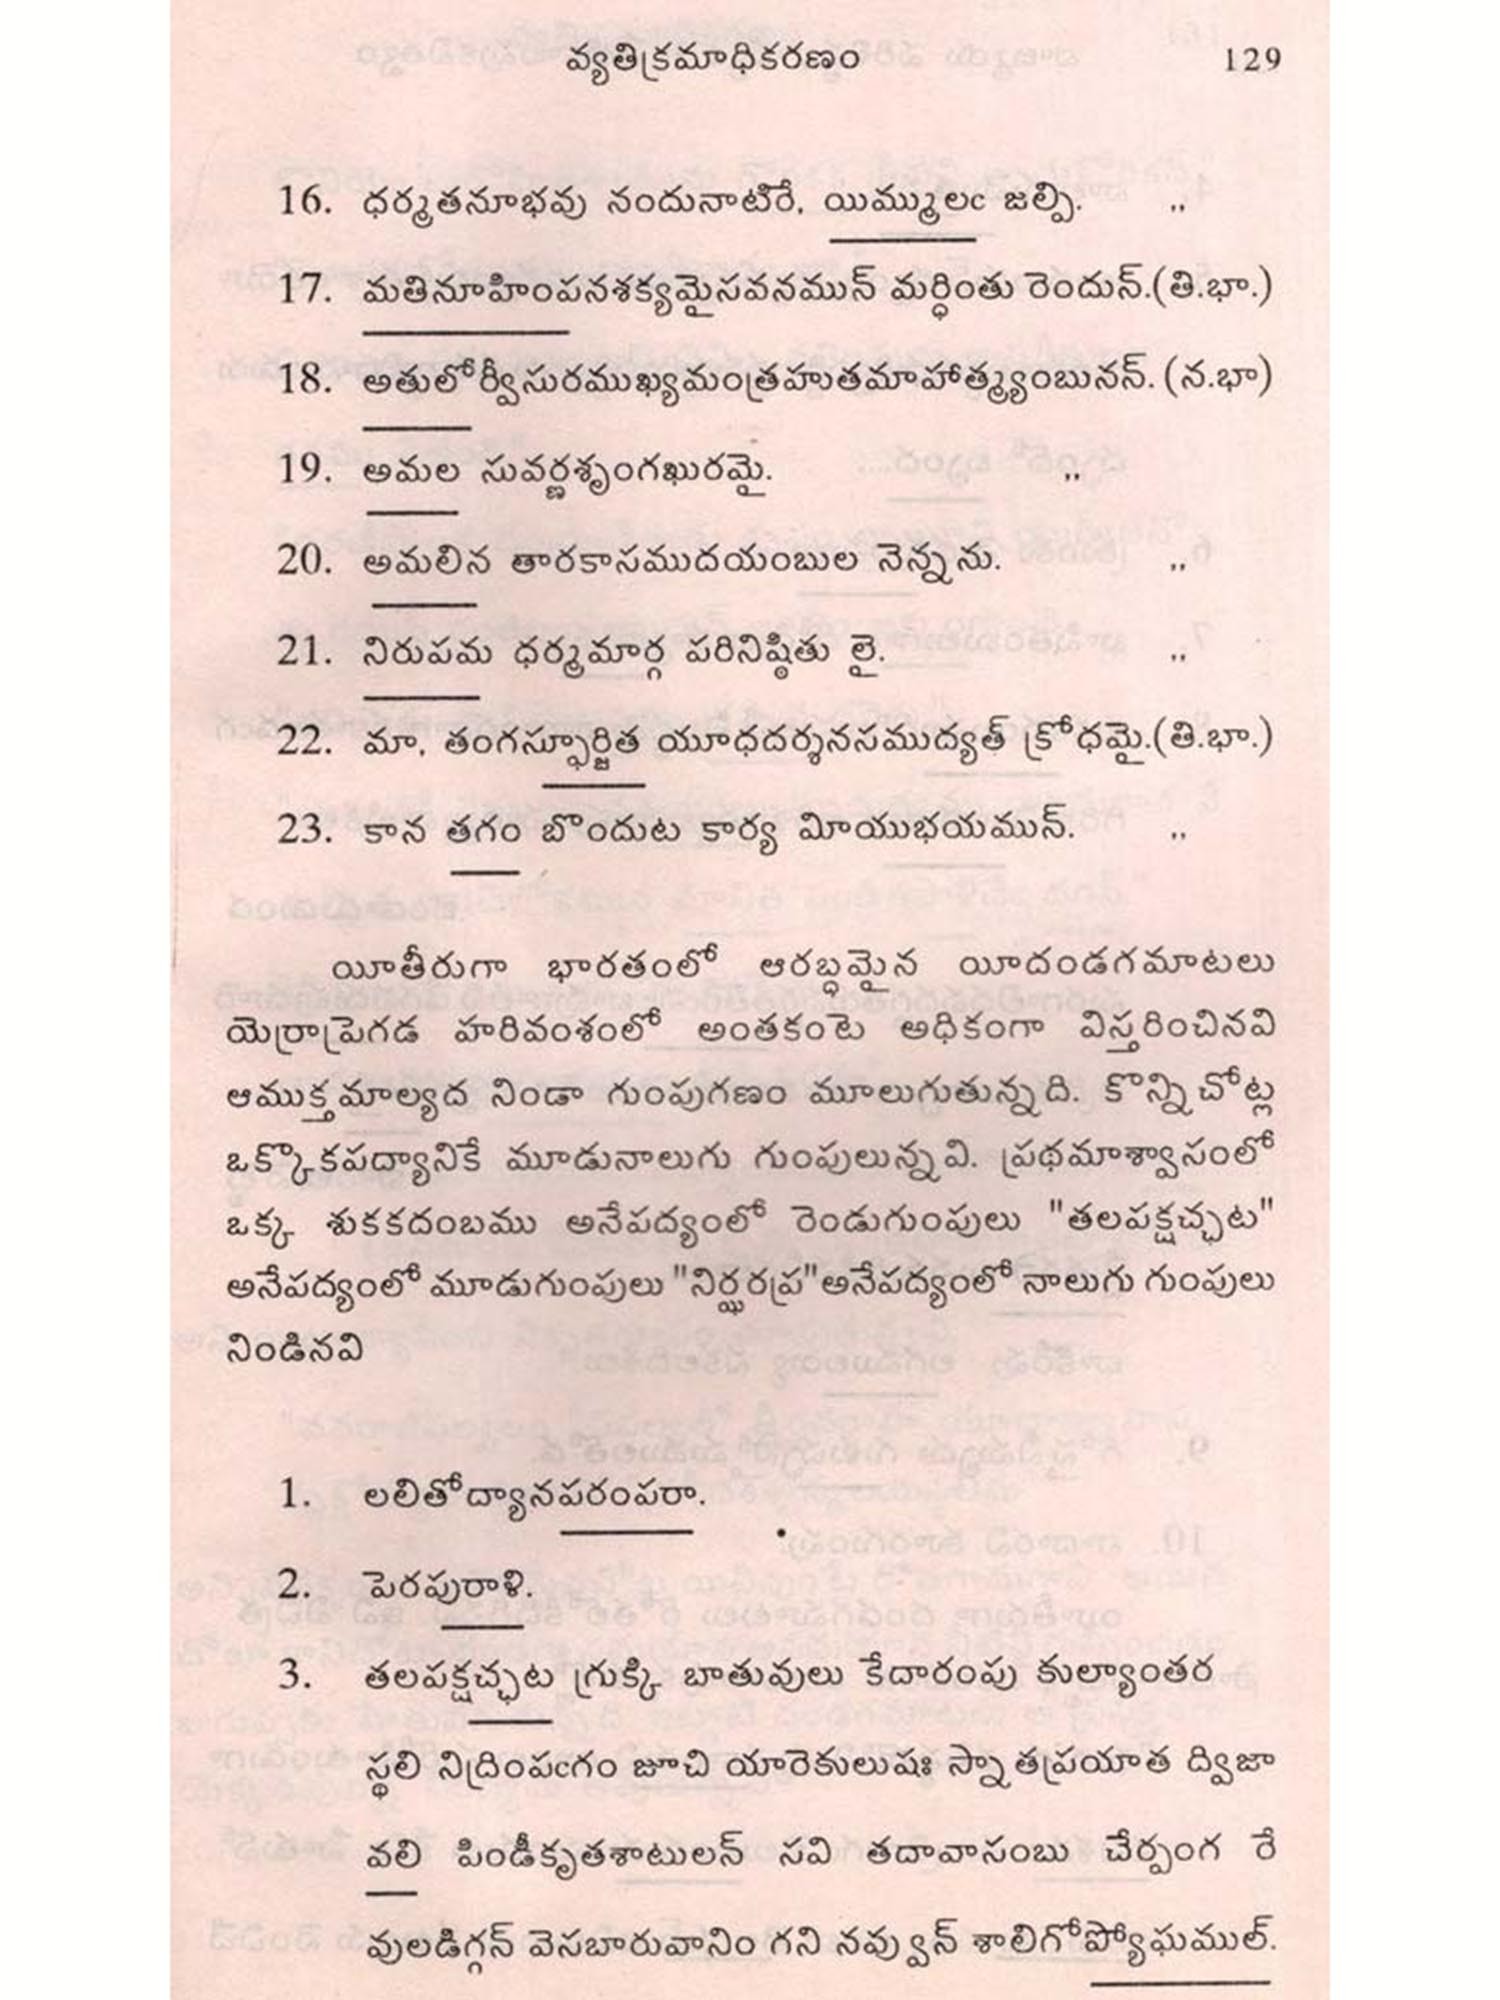 వ్యతిక్రమాధికరణం 129
16. ధర్మతనూభవు నందునాటిరే, యిమ్ములఁ జల్పి. ,,
17. మతినూహింపనశక్యమైసవనమున్ మర్ధింతు రెందున్.(తి.భా.)
18. అతులోర్వీసురముఖ్యమంత్రహుతమాహాత్మ్యంబునన్. (న.భా)
19. అమల సువర్ణశృంగఖురమై. ,,
20. అమలిన తారకాసముదయంబుల నెన్నను. ,,
21. నిరుపమ ధర్మమార్గ పరినిష్ఠితు లై. ,,
22. మా, తంగస్ఫూర్జిత యూధదర్శనసముద్యత్ క్రోధమై.(తి.భా.)
23. కాన తగం బొందుట కార్య మీయుభయమున్. ,,
యీతీరుగా భారతంలో ఆరబ్ధమైన యీదండగమాటలు
యెర్రాప్రెగడ హరివంశంలో అంతకంటె అధికంగా విస్తరించినవి
ఆముక్తమాల్యద నిండా గుంపుగణం మూలుగుతున్నది. కొన్నిచోట్ల
ఒక్కొకపద్యానికే మూడునాలుగు గుంపులున్నవి. ప్రథమాశ్వాసంలో
ఒక్క శుకకదంబము అనేపద్యంలో రెండుగుంపులు "తలపక్షచ్ఛట"
అనేపద్యంలో మూడుగుంపులు "నిర్ఝరప్ర" అనేపద్యంలో నాలుగు గుంపులు
నిండినవి
1. లలితోద్యానపరంపరా.
2. పెరపురాళి.
3. తలపక్షచ్ఛట గ్రుక్కి బాతువులు కేదారంపు కుల్యాంతర
స్థలి నిద్రింపఁగం జూచి యారెకులుషః స్నాతప్రయాత ద్విజా
వలి పిండీకృతశాటులన్ సవి తదావాసంబు చేర్పంగ రే
వులడిగ్గన్ వెసబారువానిం గని నవ్వున్ శాలిగోప్యోఘముల్.